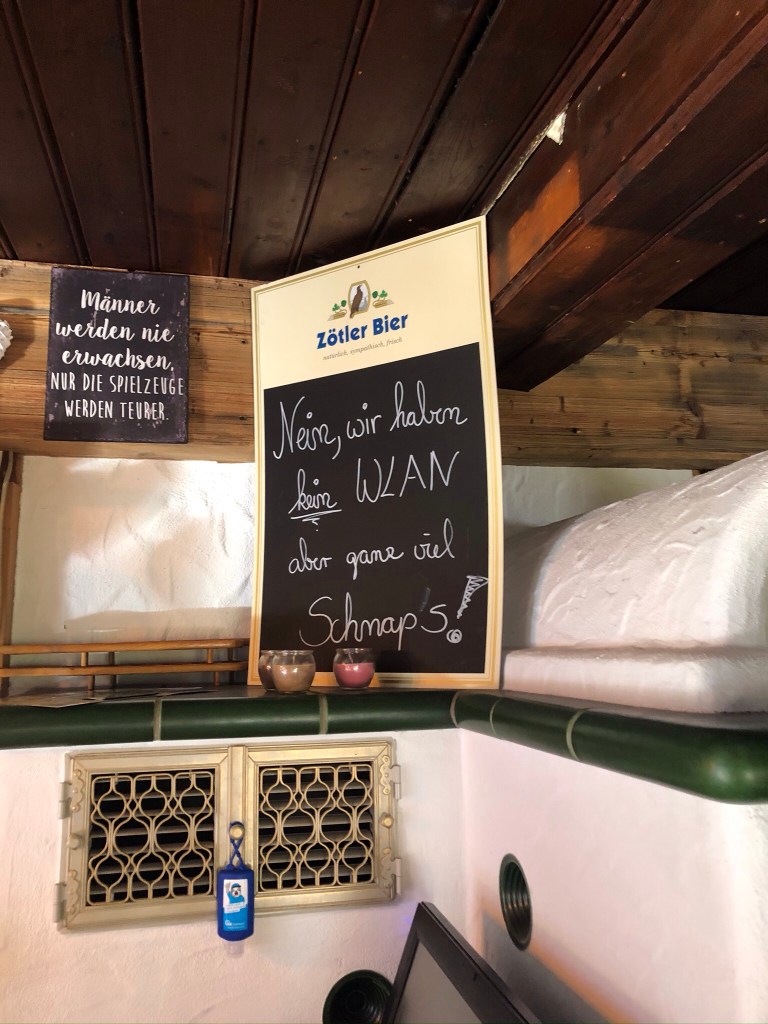 Männer
werden nie
erwachsen.
NUR DIE SPIELZEUGE
WERDEN TEURER.
Zötler Bier
natürlich, sympathisch, frisch
Nein, wir haben
kein WLAN
aber ganz viel
Schnaps!